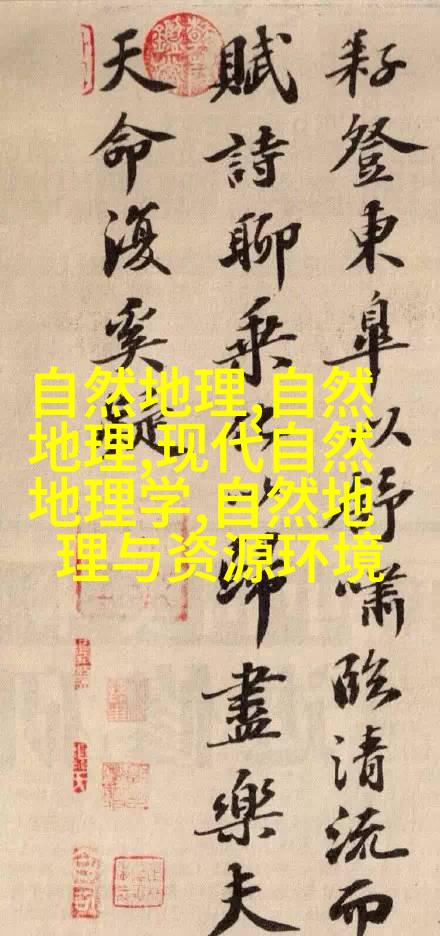 耔登東皐以舒嘯臨清流而
賦詩聊乘化以歸盡樂夫
天命復奚疑
自然地理,自然
地理,现代自然
地理学,自然地
理与资源环境